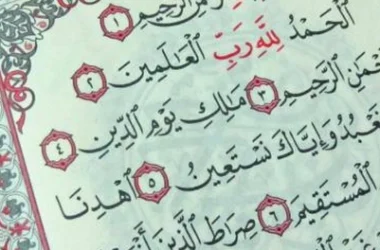 مِنَ ٱلرَّحِيمِ ١
ٱلْحَمْدُ لِلَّهِ رَبِّ ٱلْعَٰلَمِينَ ٢
ٱلرَّحِيمِ ٣ مَٰلِكِ يَوْمِ ٱلدِّينِ ٤
نَعْبُدُ وَإِيَّاكَ نَسْتَعِينُ ٥ ٱهْدِنَا
ٱلْمُسْتَقِيمَ ٦ صِرَٰطَ ٱلَّذِينَ